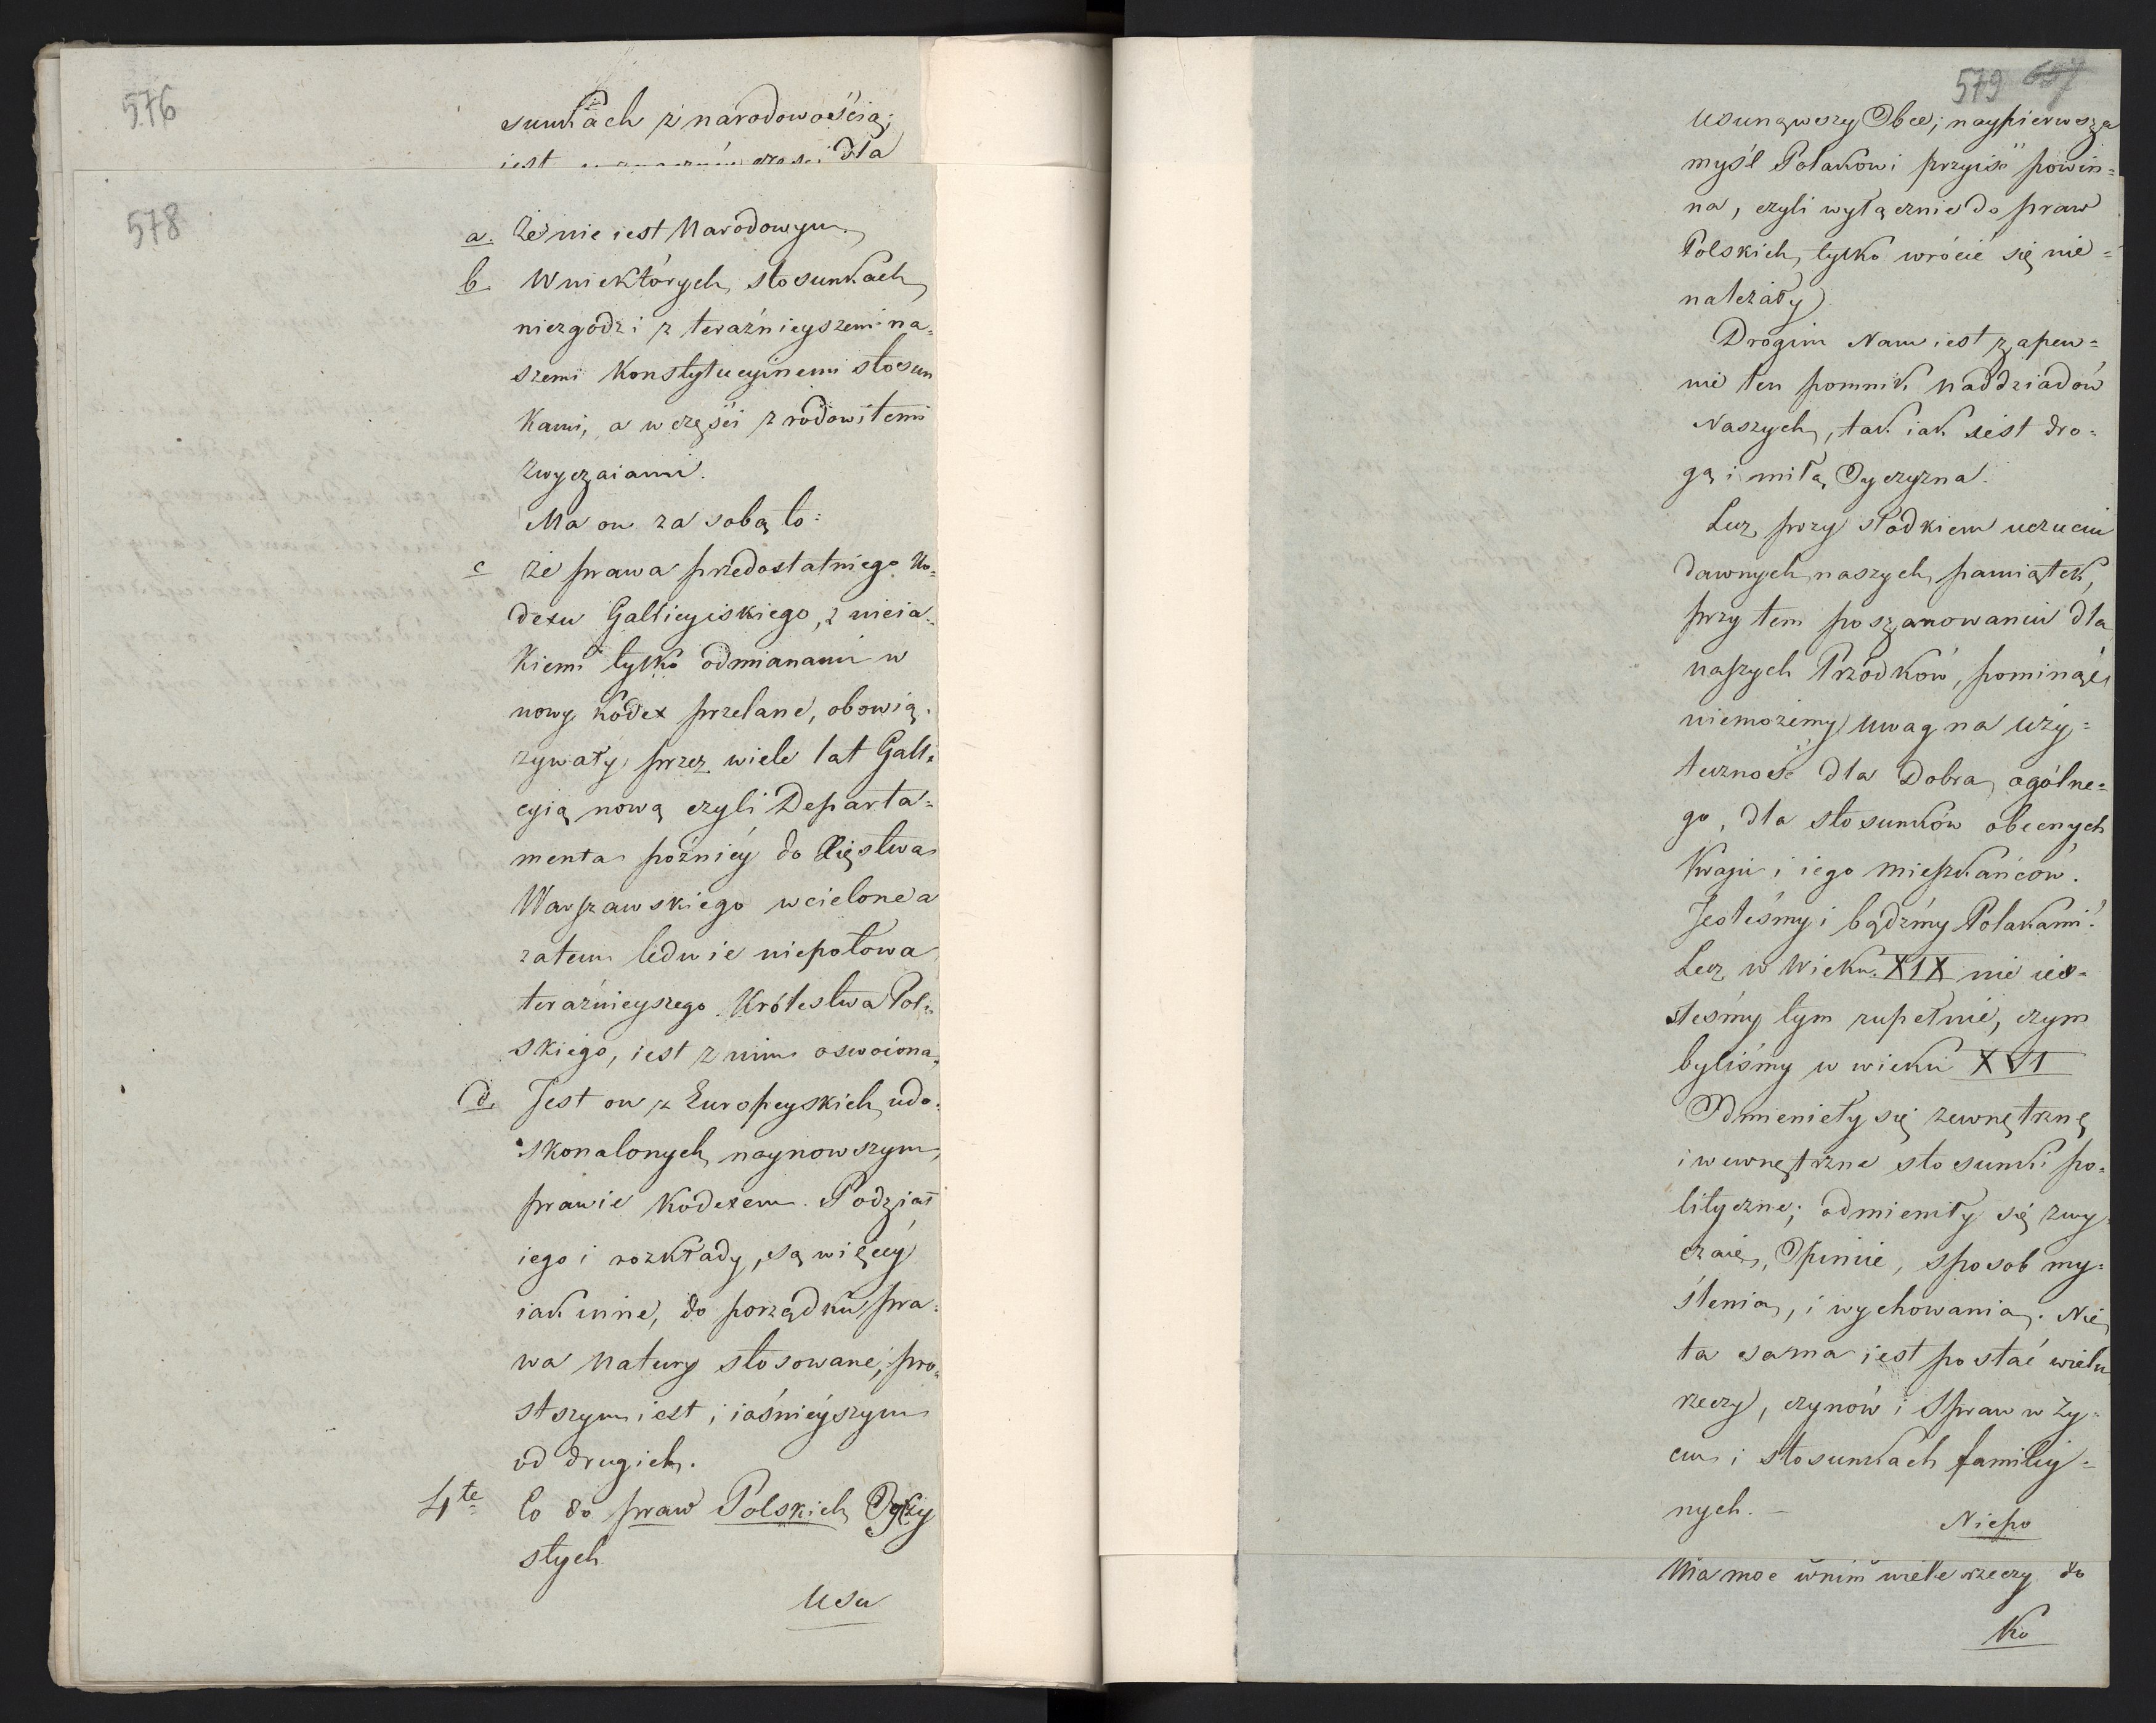 576
sunkach z narodowością;
iest dla
578
a. że nie iest Narodowym.
b. W niektórych stosunkach
niezgodzi z teraźnieyszemi na=
szemi Konstytucyinemi stosun
kami, a w części z rodowitemi
zwyczaiami.
Ma on za sobą to:
c że prawa przedostatniego Ko=
dexu Galicyiskiego, z nieia=
kiemi tylko odmianami w
nowy Kodex przelane, obowią=
zywały przez wiele lat Galli
cyią nową czyli Departa=
menta poźniéy do Xięstwa
Warszawskiego wcielone a
zatem ledwie niepołowa
teraźnieyszego Królestwa Pol=
skiego, iest z nim oswoiona.
d. Jest on z Europeyskich udo=
skonalonych naynowszym
prawie Kodexem. Podział
iego i rozkłady, są więcéy
iak inne, do porządku pra=
wa Natury stosowane; pro=
stszym iest, i iaśniéyszym
od drugich.
4te Co do praw Polskich Oyczy
stych.
Usu
579 657
usunąwszy Obce; naypierwszą
myśl Polakowi przyiść powin=
na, czyli wyłącznie do praw
Polskich tylko wrócić się nie=
należały)
Drogim Nam iest zapew=
nie ten pomnik Naddziadów
Naszych, tak iak iest dro=
gą i miłą Oyczyzna.
Lecz przy słodkiem uczuciu
dawnych naszych pamiątek,
przy tem poszanowaniu dla
naszych Przodków, pominąć
niemożemy uwag na uży=
teczność dla Dobra ogólne=
go, dla stosunków obecnych
Kraju i iego mieszkańców.
Jesteśmy i bądźmy Polakami!
Lecz w Wieku XIX nie ies=
steśmy tym zupełnie, czym
byliśmy w wieku XVI
Odmieniły się zewnętrzne
i wewnętrzne stosunki po=
lityczne; odmieniły się zwy
czaie, Opinie, sposob my=
ślenia, i wychowania. Nie
ta sama iest postać wielu
rzeczy, czynów i Spraw w ży=
ciu i stosunkach familiy=
nych. –
Niepo
Ma moc w nim wiele rzeczy do
Ko